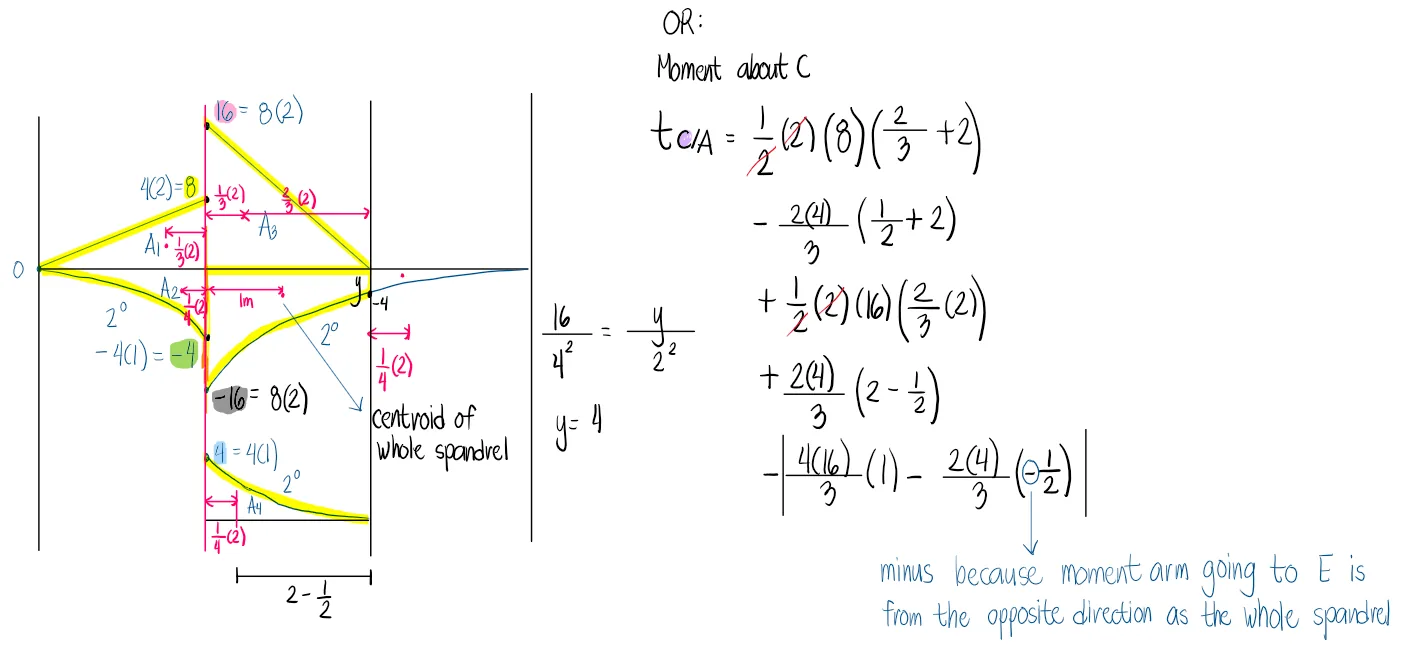 16 = 8(2)
4(2)=8
1/3(2)
2/3(2)
A₁
1/3(2)
A₃
0
A₂
1/4(2)
1m
y
-4
2°
2°
-4(1) = -4
1/4(2)
-16 = 8(2)
centroid of
whole spandrel
4 = 4(1)
2°
A₄
1/4(2)
2 - 1/2
16/4² = y/2²
y = 4
OR:
Moment about C
t C/A = 1/2 (2)(8)(2/3 + 2)
- 2(4)/3 (1/2 + 2)
+ 1/2 (2)(16)(2/3 (2))
+ 2(4)/3 (2 - 1/2)
- | 4(16)/3 (1) - 2(4)/3 (-1/2) |
minus because moment arm going to E is
from the opposite direction as the whole spandrel